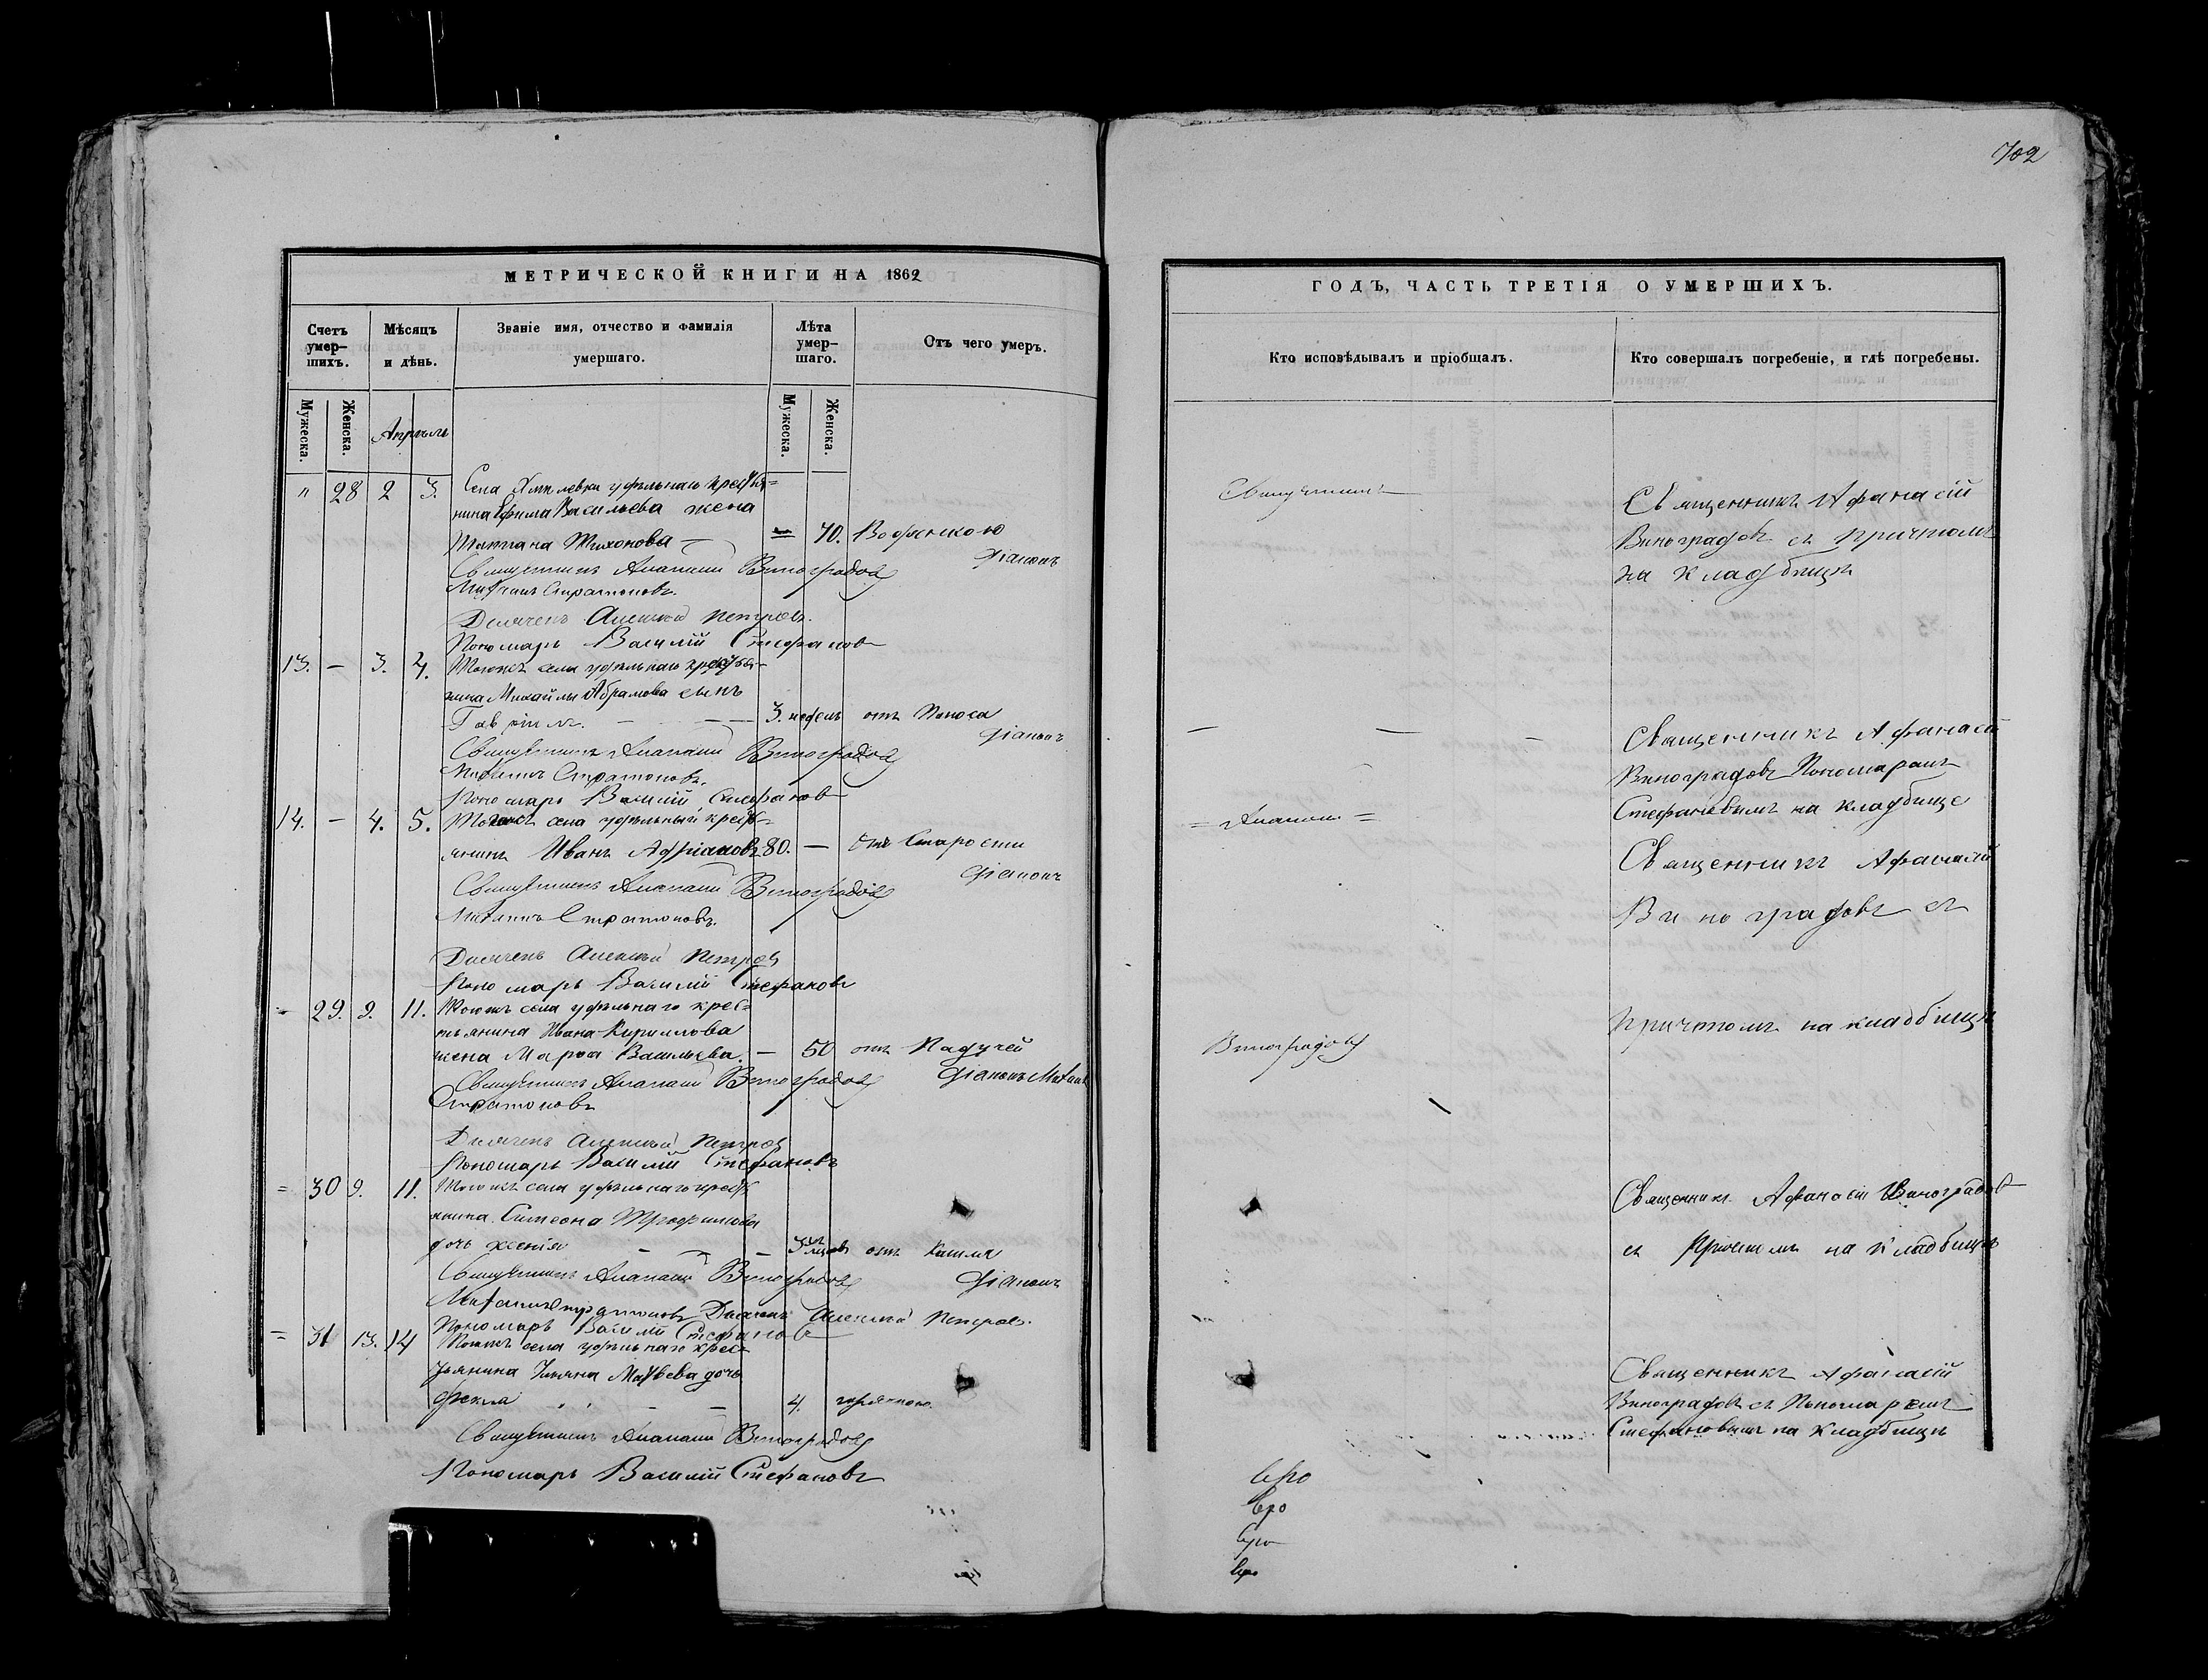 702
МЕТРИЧЕСКОЙ КНИГИ НА 1862
Счетъ умер-шихъ.
Мѣсяцъ и дѣнь.
Званіе имя, отчество и фамилія умершаго.
Лѣта умер-шаго.
Отъ чего умеръ.
Мужеска.
Женска.
Апрѣль
Мужеска.
Женска.
" 28 2 3. Села удѣльнаго крестья=
нина Ефима Васильева жена
Татіана Тихонова — = 70. Водяною
Священникъ Афанасій Виноградовъ Діаконъ
Михаилъ Стратоновъ.
Дьячекъ Алексѣй Петровъ.
Пономарь Василій Стефановъ
13. — 3. 4. Тогожъ села удѣльнаго крестья-
нина Михайлы Абрамова сынъ
Гавріилъ. — — — 3. недель отъ Поноса
Священникъ Афанасій Виноградовъ Діаконъ
Михаилъ Стратоновъ.
Пономарь Василій Стефановъ
14. — 4. 5. Тогожъ села удѣльный крест=
янинъ Иванъ Адріановъ 80. — Отъ Старости
Священникъ Афанасій Виноградовъ Діаконъ
Михаилъ Стратоновъ.
Дьячекъ Алексѣй Петровъ
Пономарь Василій Стефановъ
= 29. 9. 11. Тогожъ села удѣльнаго крес=
тьянина Ивана Кириллова
жена Марѳа Васильева. — 50 отъ Падучей
Священникъ Афанасій Виноградовъ Діаконъ Михаилъ
Стратоновъ
Дьячекъ Алексѣй Петровъ
Пономарь Василій Стефановъ
= 30 9. 11. Тогожъ села удѣльнаго крест
янина Симеона Трофимова
дочь Ксенія — — — 3 отъ Кашля
Священникъ Афанасій Виноградовъ Діаконъ
Михаилъ Стратоновъ Дьячекъ Алексѣй Петровъ.
Пономарь Василій Стефановъ
= 31 13. 14 Тогожъ села удѣльнаго крес=
тьянина Матвѣева дочь
Фекла — — 4. горячкою.
Священникъ Афанасій Виноградовъ
Пономарь Василій Стефановъ
ГОДЪ, ЧАСТЬ ТРЕТІЯ О УМЕРШИХЪ.
Кто исповѣдывалъ и пріобщалъ.
Кто совершалъ погребеніе, и гдѣ погребены.
Священникъ
Священникъ Афанасій
Виноградовъ съ Причтомъ
на кладбищѣ
— — — Священникъ Афанасій
Виноградовъ Пономаремъ
Стефановымъ на кладбище
= Афанасій =
Священникъ Афанасій
Виноградовъ съ
Причтомъ на кладбищѣ
Виноградовъ
Священникъ Афанасій Виноградовъ
съ Причтомъ на кладбищѣ
Священникъ Афанасій
Виноградовъ съ Пономаремъ
Стефановымъ на Кладбищѣ